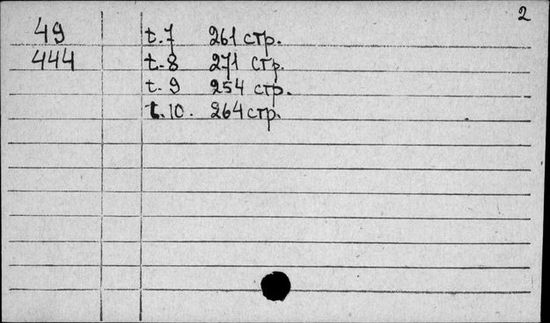 2
49 t.7 261 стр.
444 t.8 271 стр.
t.9 254 стр.
t.10. 264 стр.